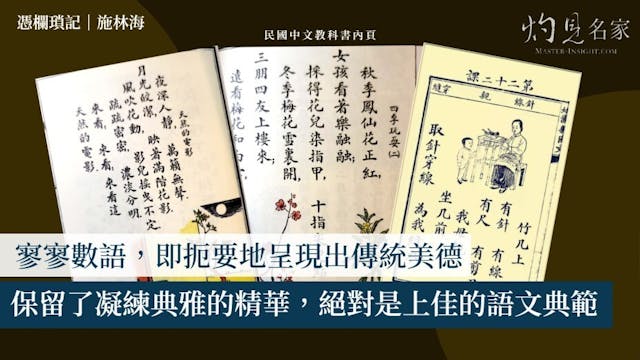 憑欄瑣記｜施林海
民國中文教科書內頁
灼見名家
MASTER-INSIGHT.COM
天然的電影
夜深人靜，萬籟無聲．
月光皎潔，映著滿階花影．
風吹花動，影兒搖曳不定
疏疏密密，濃淡分明．
來看，來看，來看這
天然的電影．
四季玩耍(二)
秋季鳳仙花正紅，
女孩看著樂融融；
採得花兒染指甲，
十指
冬季梅花雪裏開，
三朋四友上樓來；
遠看梅花如
第二十二課
針線
親
穿縫
竹几上
有針 有線
有尺 有剪
我母
坐几前
取針穿線
為我
寥寥數語，即扼要地呈現出傳統美德
保留了凝練典雅的精華，絕對是上佳的語文典範